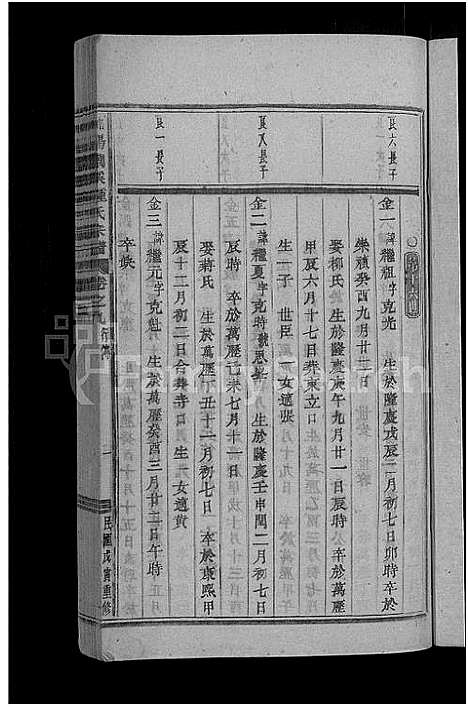 民六長子
金一 諱繼祖字克光 生於隆慶戊辰二月初七日卯時卒於
崇禎癸酉九月廿三日
娶柳氏 生於隆慶庚午九月廿一日辰時公卒於萬歷
甲辰六月十七日葬東立口
生一子 世臣 一女適張
民八長子
金二 諱繼夏字克時號思柴 生於隆慶壬申閏二月初七日
辰時 卒於萬歷己未七月十一日
娶蔣氏 生於萬歷丁丑十二月初七日 卒於康熙甲
辰十二月初二日合葬寺口 生一女適黄
民一長子
金三 諱繼元字克魁 生於萬歷癸酉三月廿三日午時
卒缺
氏宗譜 卷之九
一
民國戊寅重修